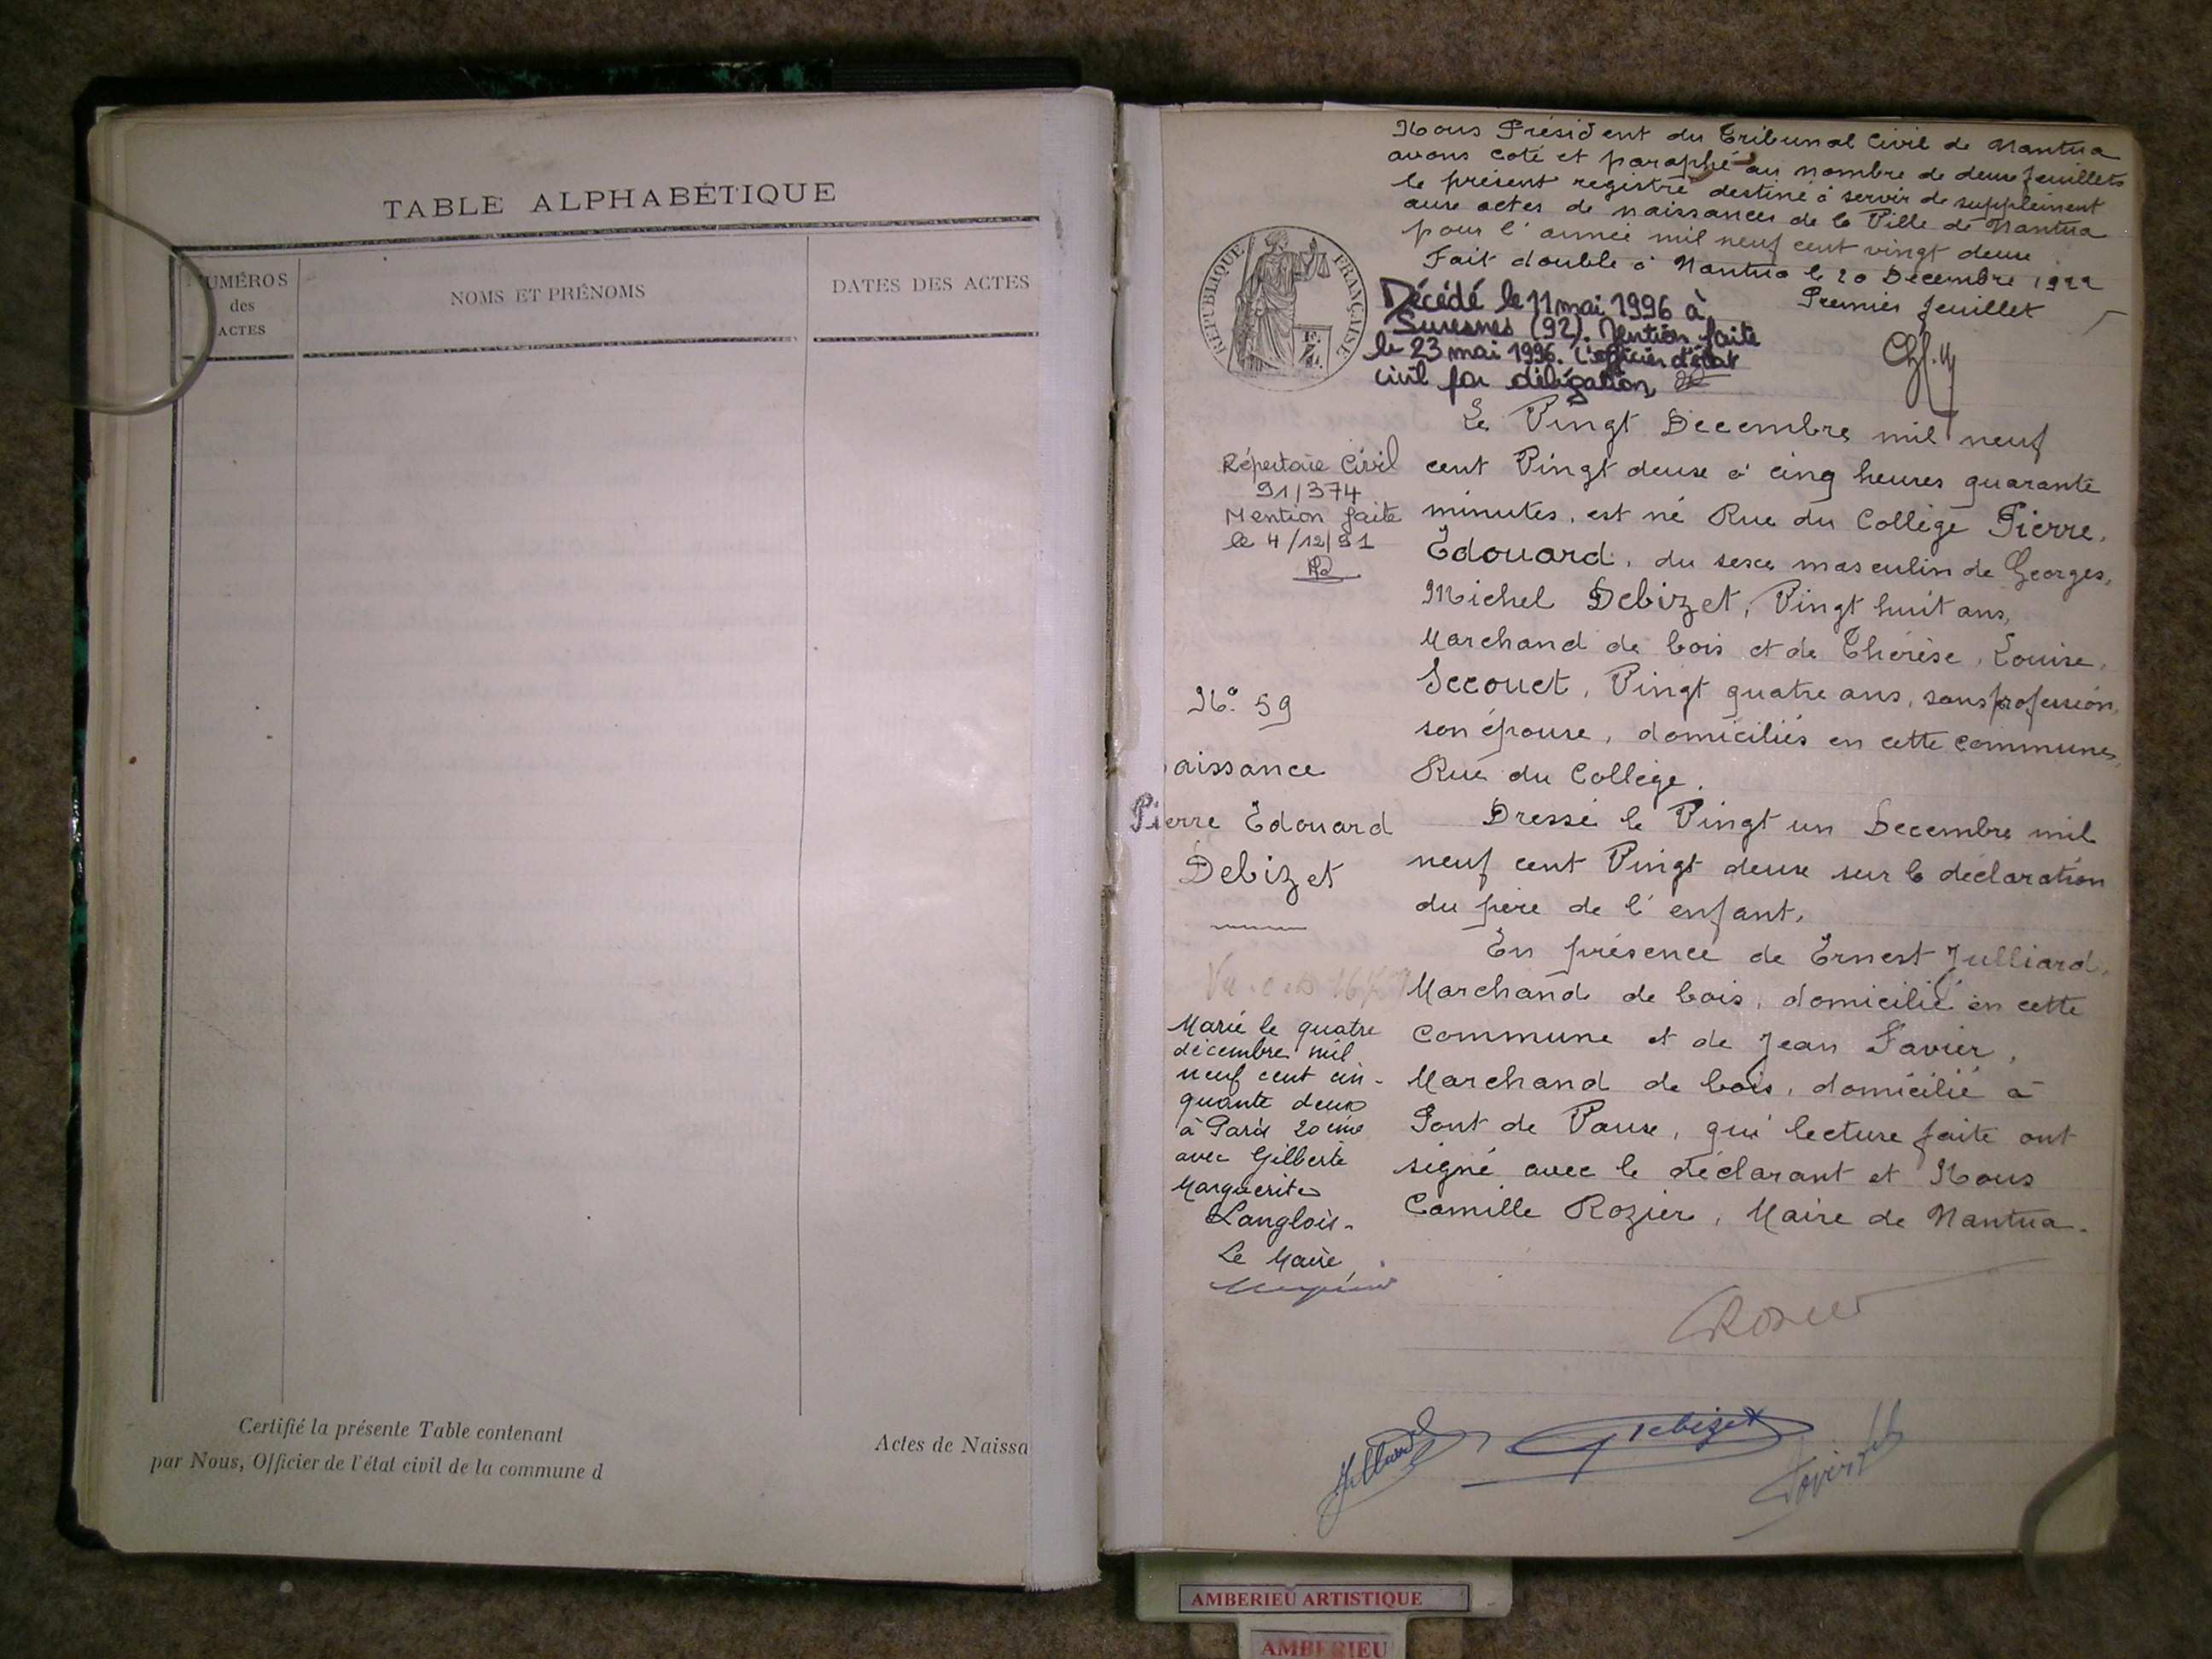 TABLE ALPHABÉTIQUE
NUMÉROS
des
ACTES
NOMS ET PRÉNOMS
DATES DES ACTES
Certifié la présente Table contenant
Actes de Naissa
par Nous, Officier de l'état civil de la commune d
Nous Président du Tribunal Civil de Nantua
avons coté et paraphé au nombre de deux feuillets
le présent registre destiné à servir de supplément
aux actes de naissances de la Ville de Nantua
pour l'année mil neuf cent vingt deux
Fait double à Nantua le 20 Décembre 1922
Premier feuillet
RÉPUBLIQUE FRANÇAISE
Décédé le 11 mai 1996 à
Suresnes (92). Mention faite
le 23 mai 1996. L'officier d'état
civil par délégation,
Répertoire Civil
91/374
Mention faite
le 4/12/91
No. 59
aissance
Pierre Edouard
Debizet
Marié le quatre
décembre mil
neuf cent cin-
quante deux
à Paris 20ème
avec Gilberte
Marguerite
Langlois.
Le Maire,
Le Vingt Décembre mil neuf
cent Vingt deux à cinq heures quarante
minutes, est né Rue du Collège Pierre,
Edouard, du sexe masculin de Georges,
Michel Debizet, Vingt huit ans,
Marchand de bois et de Thérèse, Louise,
Secouet, Vingt quatre ans, sans profession,
son épouse, domiciliés en cette commune,
Rue du Collège.
Dressé le Vingt un Décembre mil
neuf cent Vingt deux sur la déclaration
du père de l'enfant.
En présence de Ernest Julliard,
Marchand de bois, domicilié en cette
Commune et de Jean Favier,
Marchand de bois, domicilié à
Pont de Vaux, qui lecture faite ont
signé avec le déclarant et Nous
Camille Rozier, Maire de Nantua.
Rozier
Julliard
Debizet
AMBERIEU ARTISTIQUE
AMBERIEU